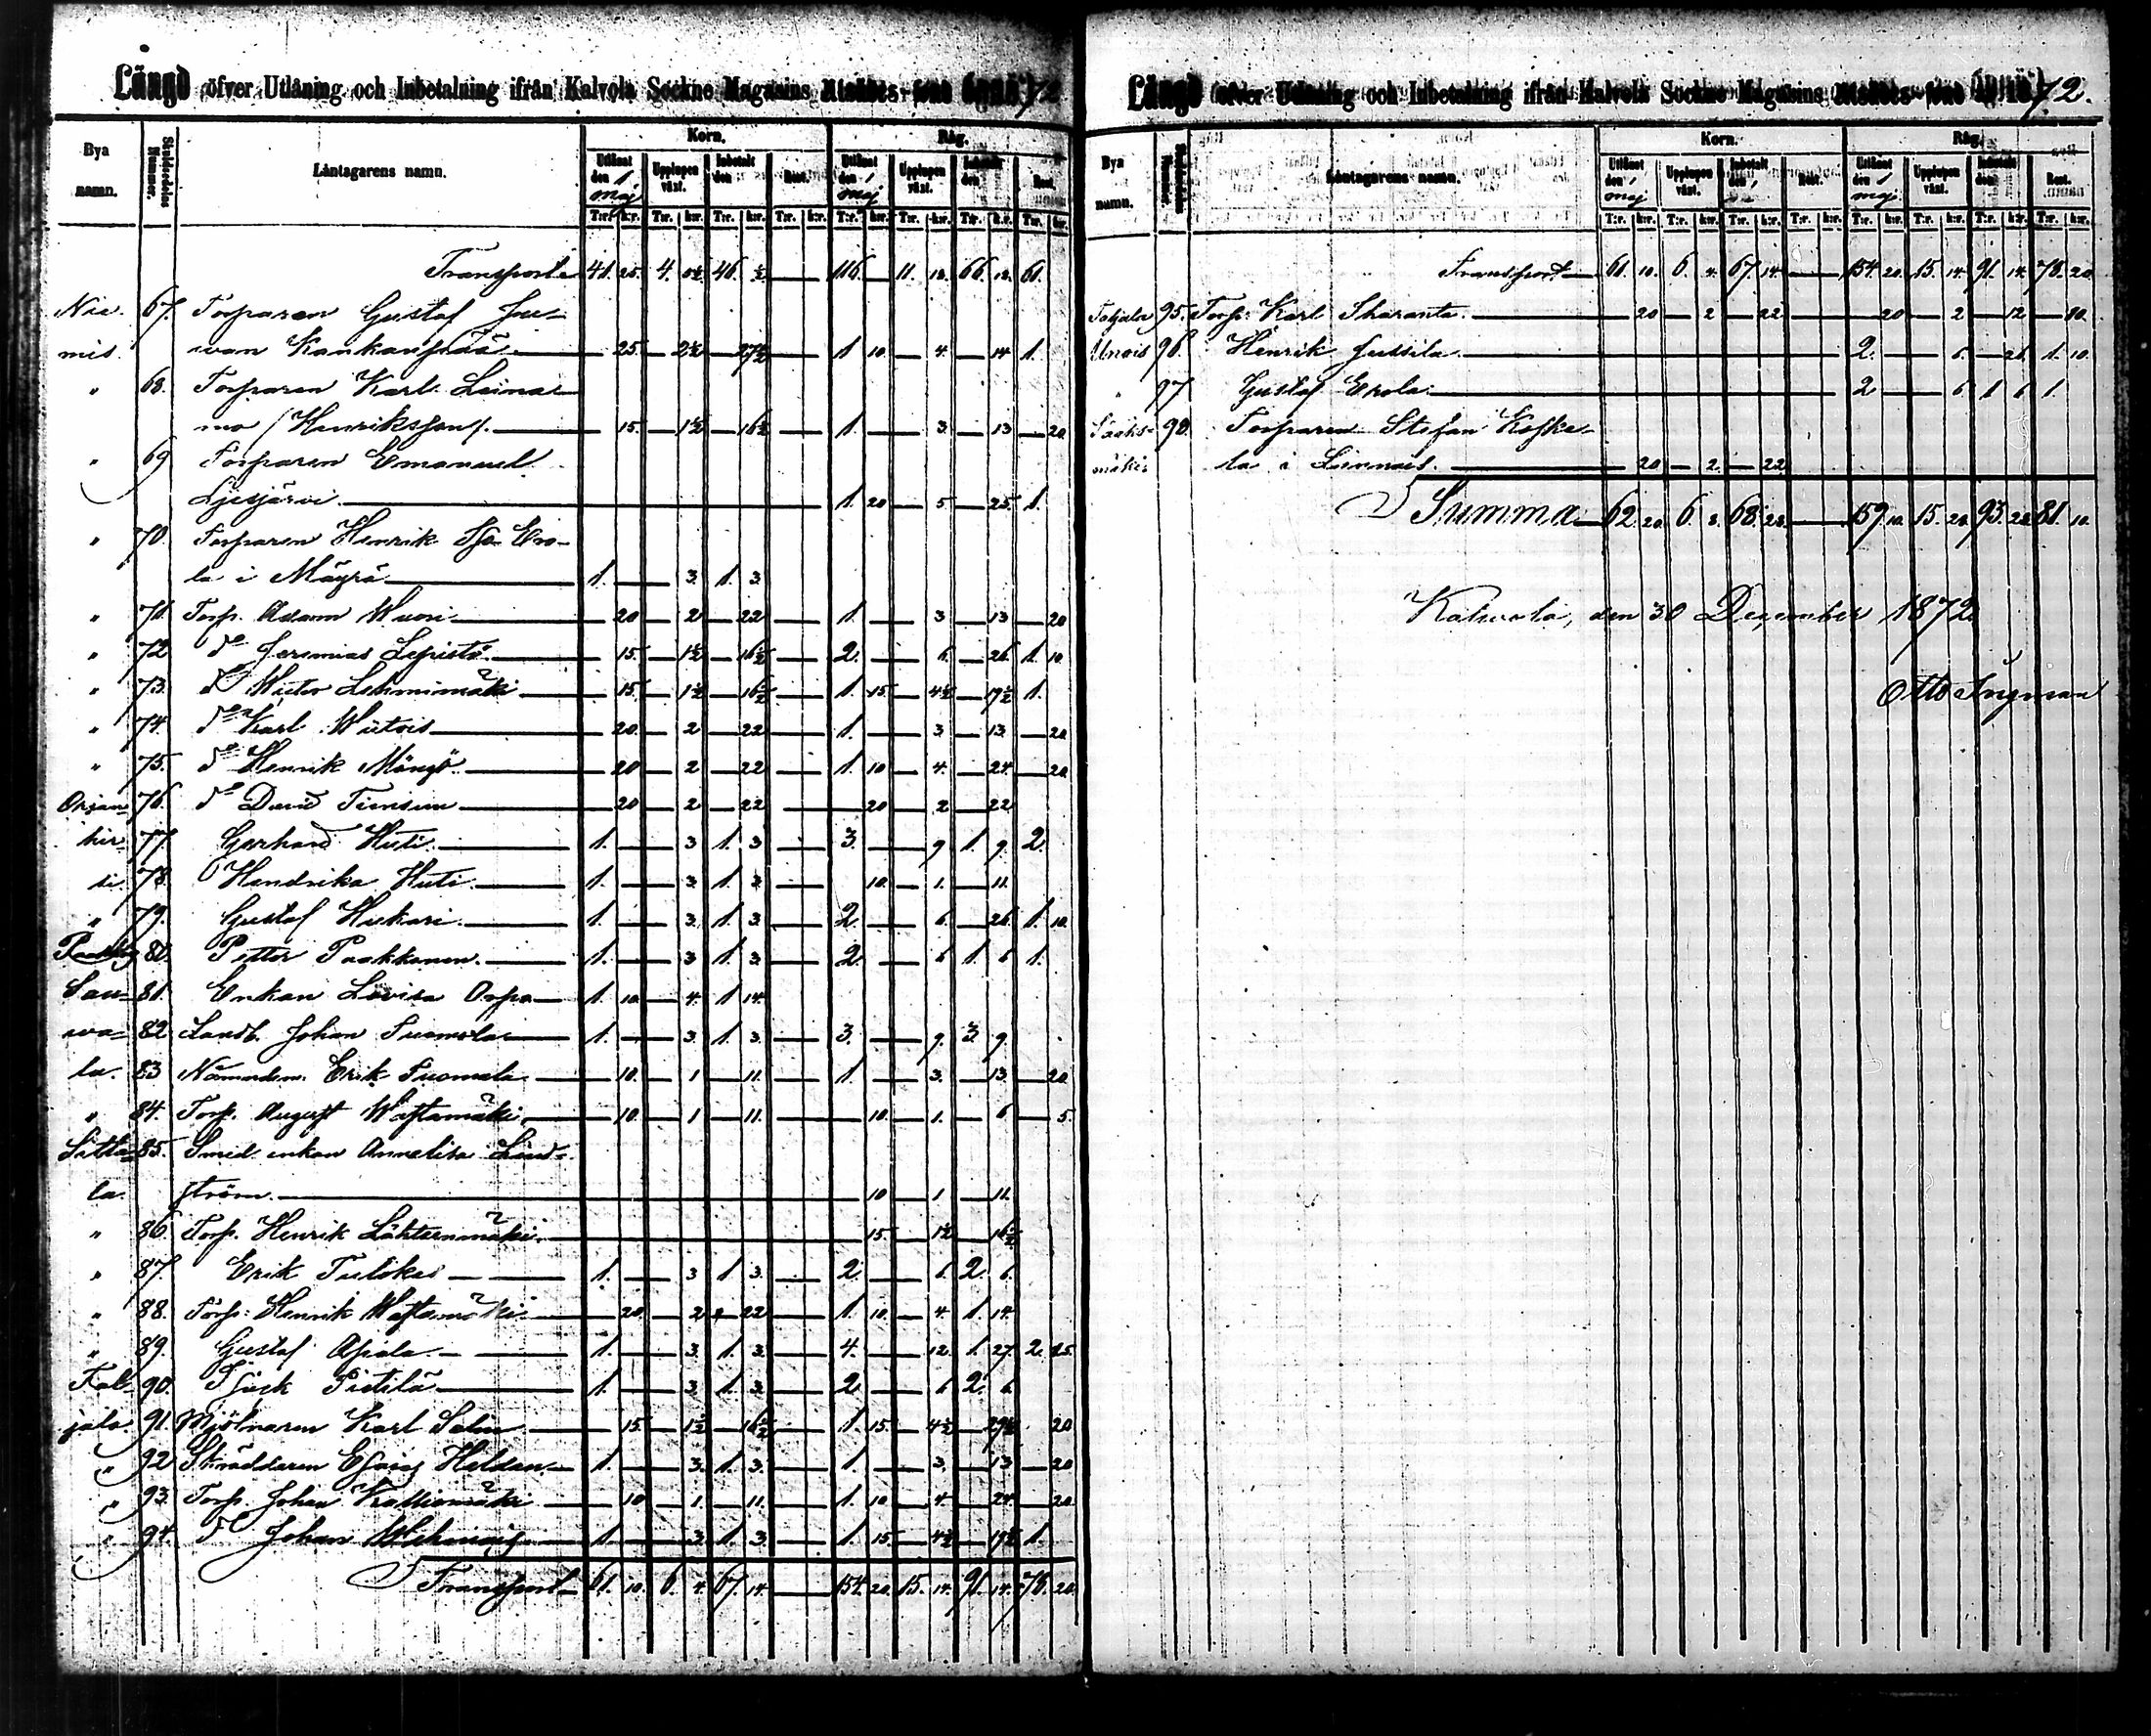 Längd öfver Utlåning och Inbetalning ifrån Kalvola Sockne Magasins 72
Korn. Råg.
Bya namn. Skuldsedelns Nummer. Låntagarens namn. Utlånt den 1 maj Upplupen växt. Inbetalt den Rest. Utlånt den 1 maj Upplupen växt. den Rest.
T:r. k:r. T:r. k:r. T:r. k:r. T:r. k:r. T:r. k:r. T:r. k:r. T:r. k:r. T:r. k:r.
Transport 41. 25. 4. 5½ 46. ½ 116. 11. 18. 66. 18. 61.
Nie- 67. Torparen Gustaf
mis. 25. 2½ 27½ 1 10. 4. 14 1.
" 68. Torparen Karl Leina-
mo /Henriksson/. 15. 1½ 16½ 1. 3. 13 20.
" 69 Torparen Emanuel
1. 20 5 25. 1.
" 70. Torparen Henrik Ero-
la i Mäyrä 1. 3. 1. 3.
" 71. Torp. Adam Wuori 20 2 22 1. 3 13 20
" 72 do Jeremias Lepistö 15. 1½ 16½ 2. 6. 26. 1. 10.
" 73. do 15. 1½ 16½ 1. 15. 4½ 19½ 1.
" 74. do Karl 20. 2 22 1. 3 13 20.
" 75. do Henrik 20 2 22 1. 10 4. 24. 20.
76. do David 20 2 22 20 2 22
77. Gerhard Huti 1. 3 1. 3 3. 9 1. 9. 2.
78. Hendrika Huti 1. 3. 1. 3. 10. 1. 11.
" 79. Gustaf Hukari 1. 3. 1. 3 2. 6. 26. 1. 10.
80. Petter Paakkanen 1. 3 1. 3 2. 6 1. 6 1.
Sau- 81. Enkan Lovisa Orpo 1. 10. 4. 1 14.
va- 82. Landb. Johan Tuomola 1. 3. 1. 3. 3. 9. 3. 9.
la. 83 Nämndem. Erik Tuomela 10. 1 11. 1. 3. 13. 20.
" 84. Torp. August 10. 1 11. 10. 1. 6 5.
Sittä- 85. Smed enkan Annalisa Lind-
la. ström. 10 1 11.
" 86. Torp. Henrik Lähteenmäki 15. 1½ 16½
" 87. Erik Tulokas 1. 3 1 3. 2. 6. 2. 6.
" 88. Torp: Henrik 20 2 22 1. 10. 4 1. 14.
" 89. Gustaf 1. 3. 1. 3. 4. 12. 1. 27. 2. 15.
Tal- 90. 1. 3. 1. 3. 2. 6 2. 6.
jala. 91. Mjölnaren Karl Salin 15. 1½ 16½ 1. 15. 4½ 29½ 20
" 92 Skräddaren 1. 3. 1. 3. 1. 3. 13 20
" 93. Torp. Johan Kalliomäki 10 1. 11. 1. 10. 4. 24. 20.
" 94. Johan 1. 3. 1. 3. 1. 15. 4½ 19½ 1.
Transport 61. 10. 6. 4. 67. 14. 154. 20. 15. 14. 91. 14. 78. 20.
Längd öfver Utlåning och Inbetalning ifrån Kalvola Sockne Magasins 72.
Korn. Råg.
Bya namn. Låntagarens namn. Utlånt den 1 maj Upplupen växt. Inbetalt den Rest. Utlånt den 1 maj Upplupen växt. Inbetalt den Rest.
T:r. k:r. T:r. k:r. T:r. k:r. T:r. k:r. T:r. k:r. T:r. k:r. T:r. k:r. T:r. k:r.
Transport 61. 10. 6. 4. 67. 14. 154. 20. 15. 14. 91. 14. 78. 20.
Taljala 95. Torp: Karl Iharanta. 20 2 22 20 2 12 10.
Unais 96. Henrik Jussila 2. 6. 26. 1. 10.
" 97 Gustaf Erola 2 6. 1 6 1.
Sääks- 98. Torparen Stefan Koske-
mäki la i 20 2. 22
Summa 62. 20. 6. 8. 68. 28. 159. 10. 15. 28. 93. 28. 81. 10.
Kalvola, den 30 December 1872
Otto Ingman